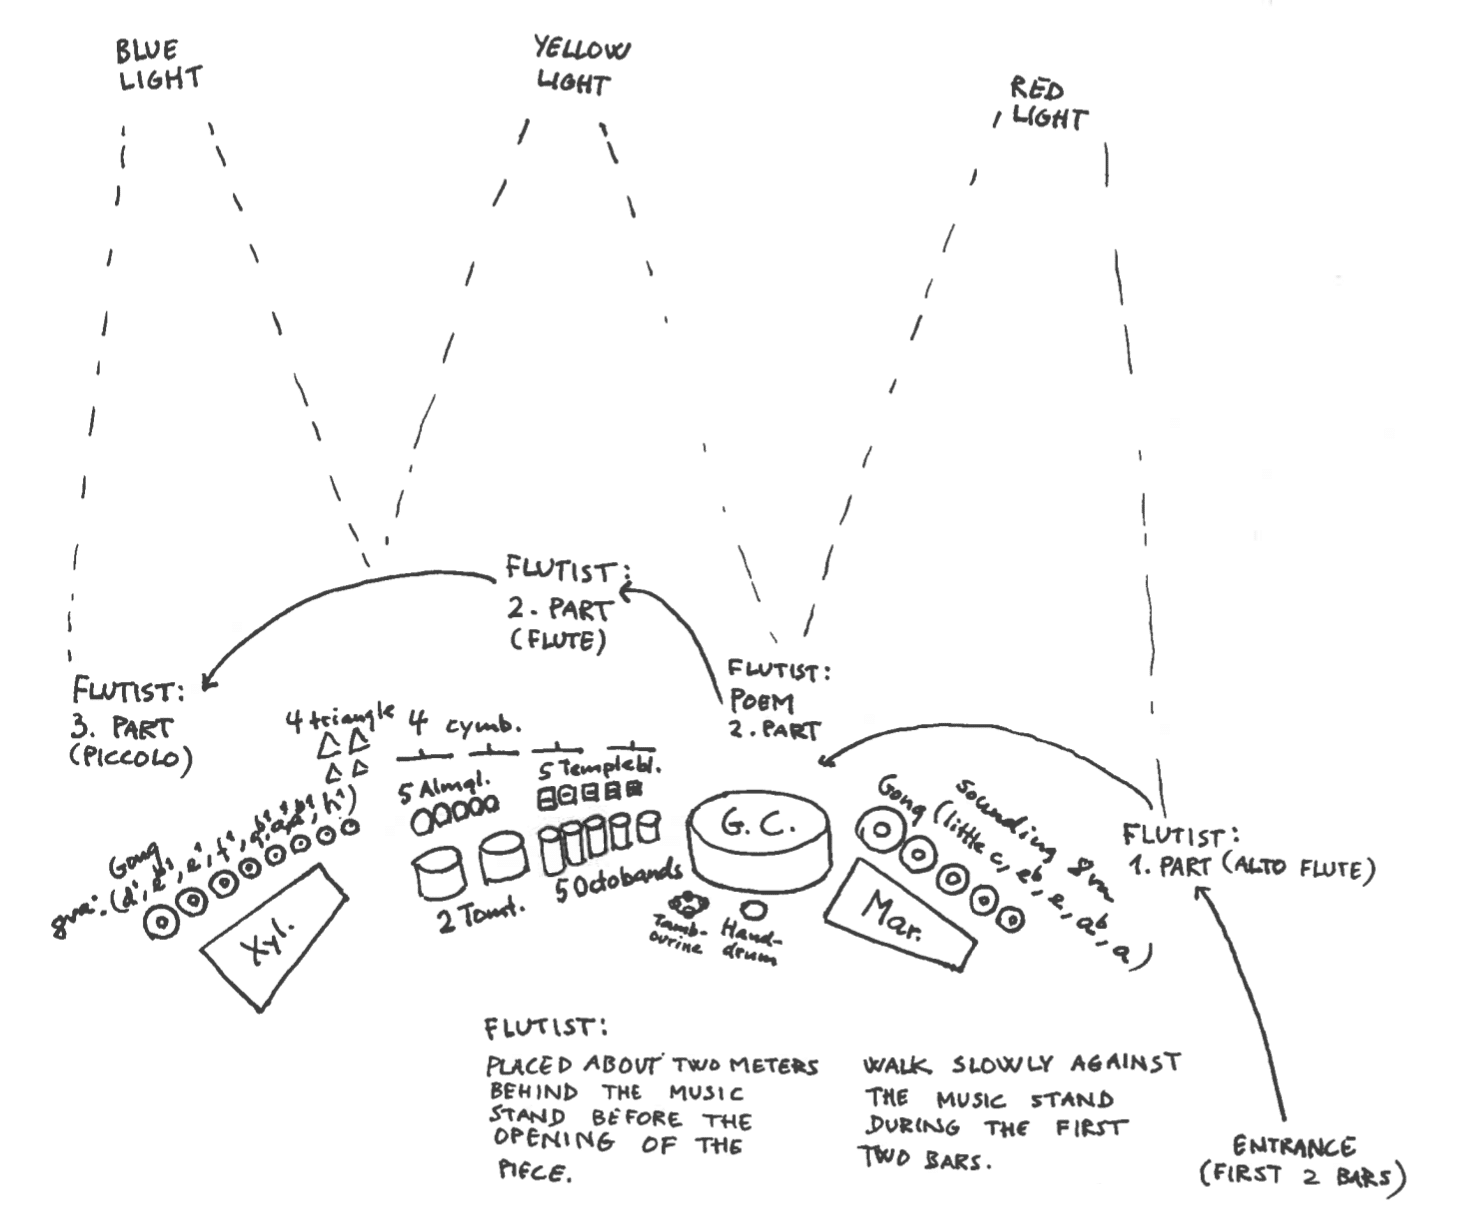 BLUE
LIGHT
YELLOW
LIGHT
RED
LIGHT
FLUTIST:
2. PART
(FLUTE)
FLUTIST:
POEM
2. PART
FLUTIST:
3. PART
(PICCOLO)
4 triangle
4 cymb.
5 Almgl.
5 Templebl.
Gong
8va: (d¹, eb¹, e¹, f¹,
h¹)
Xyl.
2 Tomt.
5 Octobands
G.C.
Tamb-
ourine
Hand-
drum
Mar.
Sounding 8va
Gong (little c, eb, e, ab, a)
FLUTIST:
1. PART (ALTO FLUTE)
FLUTIST:
PLACED ABOUT TWO METERS
BEHIND THE MUSIC
STAND BEFORE THE
OPENING OF THE
PIECE.
WALK SLOWLY AGAINST
THE MUSIC STAND
DURING THE FIRST
TWO BARS.
ENTRANCE
(FIRST 2 BARS)